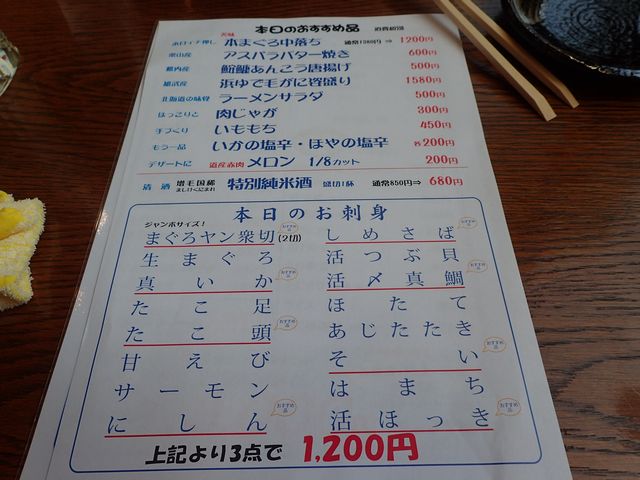 本日のおすすめ品
本まぐろ中落ち 通常1380円⇒1200円
アスパラバター焼き 600円
稚内産 鮟鱇あんこう唐揚げ 500円
雄武産 浜ゆで毛がに姿盛り 1580円
北海道の味覚 ラーメンサラダ 500円
ほっこりと 肉じゃが 300円
手づくり いももち 450円
もう一品 いかの塩辛・ほやの塩辛 各200円
デザートに 道産赤肉 メロン 1/8カット 200円
清酒 増毛国稀 特別純米酒 盛切1杯 通常850円⇒680円
本日のお刺身
ジャンボサイズ!
まぐろヤン衆切(2切) おすすめ品
生まぐろ
真いか おすすめ品
たこ足
たこ頭 おすすめ品
甘えび
サーモン
にしん おすすめ品
しめさば おすすめ品
活つぶ貝
活〆真鯛 おすすめ品
ほたて
あじたたき
そい おすすめ品
はまち
活ほっき おすすめ品
上記より3点で 1,200円